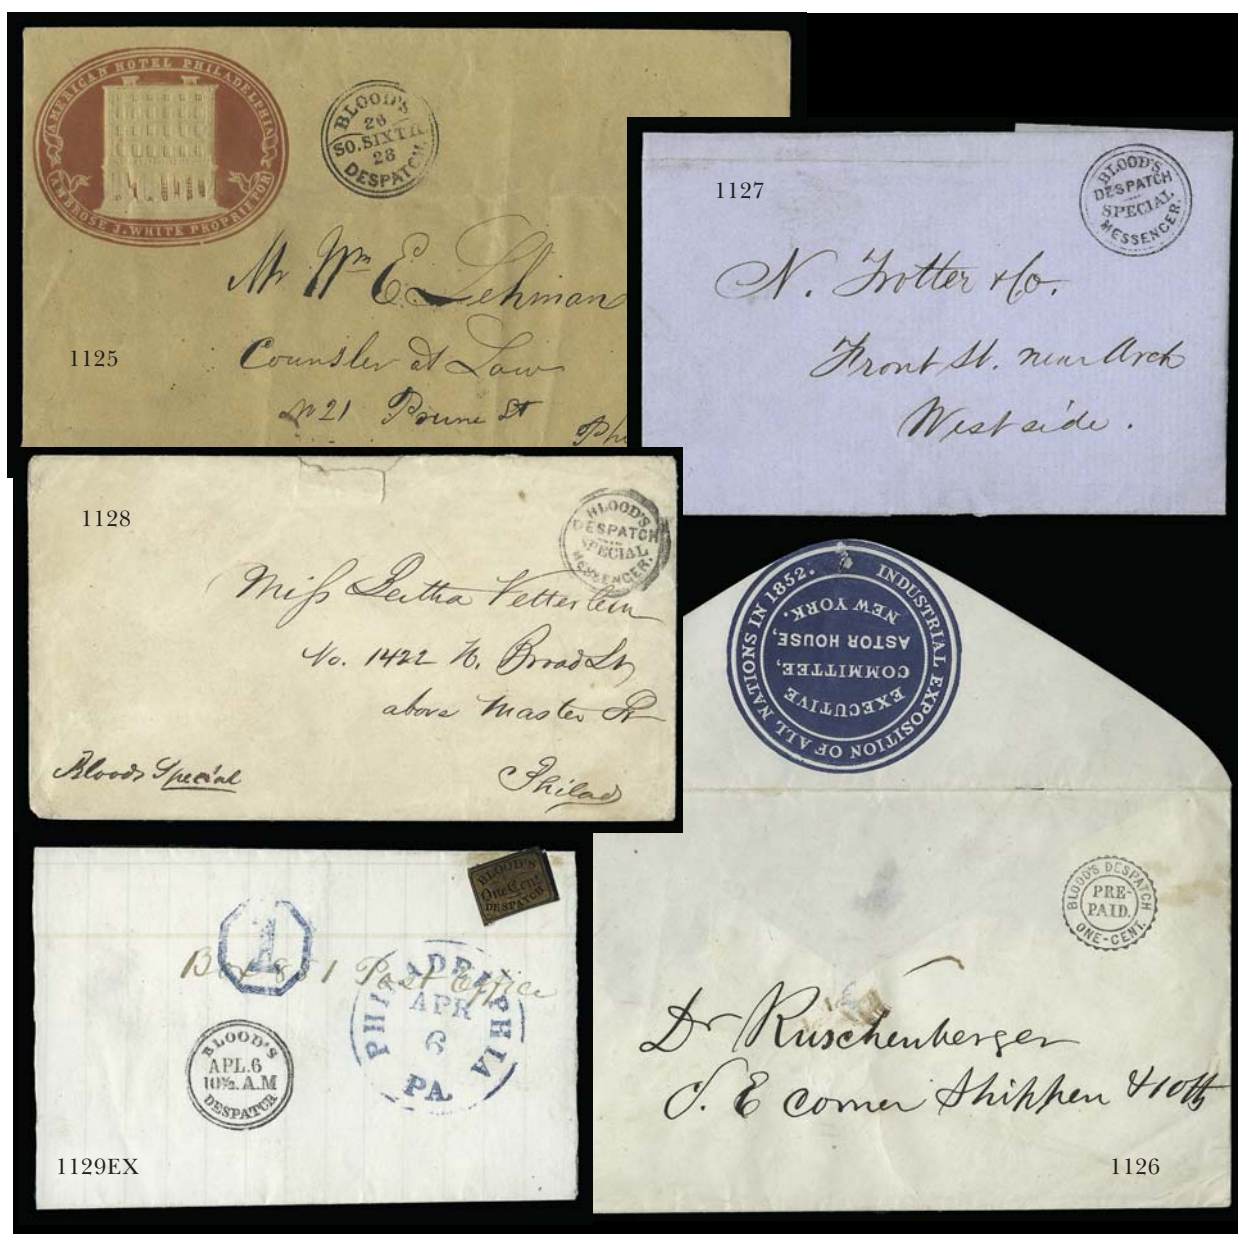 AMERICAN HOTEL PHILADELPHIA
AMBROSE J. WHITE PROPRIETOR
BLOOD'S
26
SO. SIXTH
28
DESPATCH
Mr Wm E. Lehman
Counsler at Law
No 21 Prune St
Ph
1125
1127
BLOOD'S
DESPATCH
SPECIAL
MESSENGER.
N. Trotter & Co.
Front St. near Arch
West side.
1128
BLOOD'S
DESPATCH
SPECIAL
MESSENGER.
Miss Bertha Vetterlein
No. 1422 N. Broad St
above Master St
Bloods Special
Philad
INDUSTRIAL EXPOSITION OF ALL NATIONS IN 1852.
EXECUTIVE
COMMITTEE,
ASTOR HOUSE,
NEW YORK.
BLOOD'S DESPATCH
PRE-
PAID.
ONE-CENT.
Dr Ruschenberger
S. E corner Shippen & 10th
1126
BLOOD'S
One Cent
DESPATCH
1
Box 851 Post Office
PHILADELPHIA
APR
6
PA.
BLOOD'S
APL. 6
10½. A.M
DESPATCH
1129EX